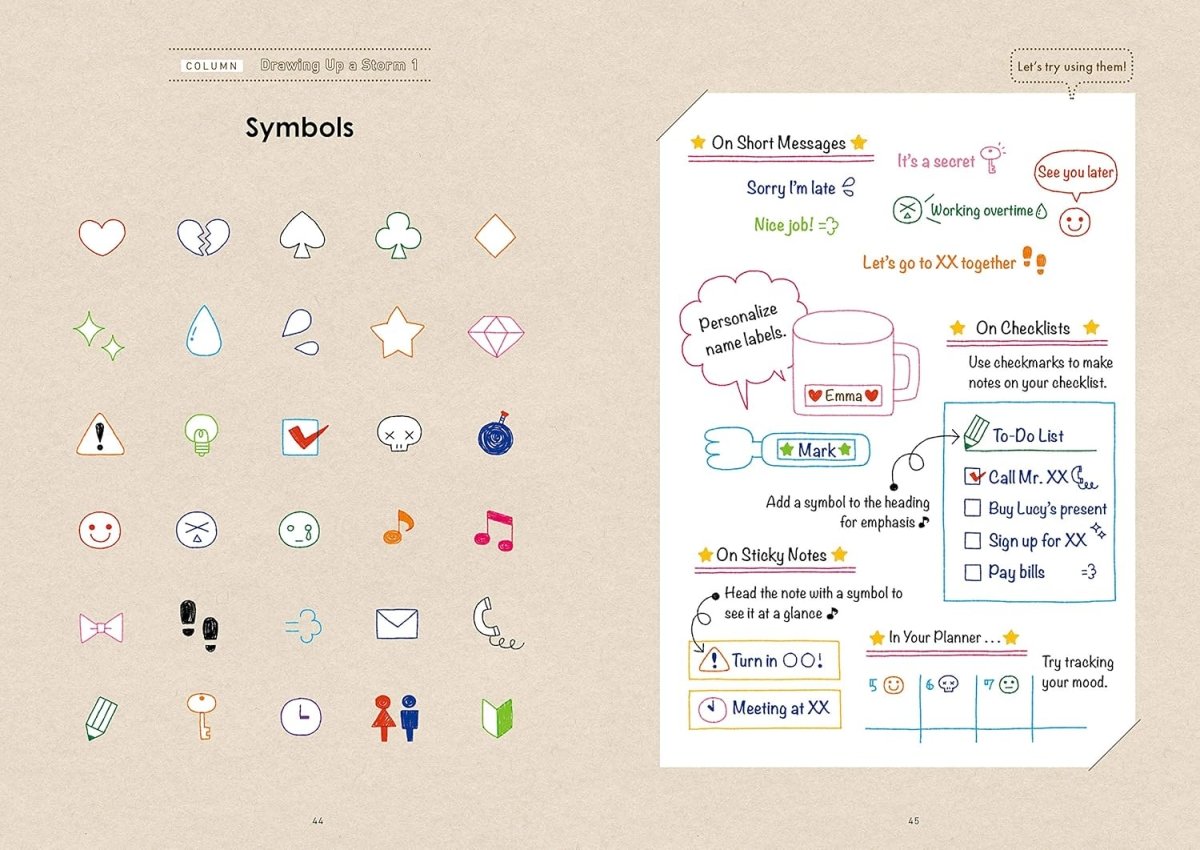 COLUMN Drawing Up a Storm 1
Symbols
44
Let's try using them!
On Short Messages
It's a secret
See you later
Sorry I'm late
Working overtime
Nice job!
Let's go to XX together
Personalize
name labels.
Emma
Mark
On Checklists
Use checkmarks to make
notes on your checklist.
To-Do List
Call Mr. XX
Buy Lucy's present
Sign up for XX
Pay bills
Add a symbol to the heading
for emphasis
On Sticky Notes
Head the note with a symbol to
see it at a glance
Turn in ○○!
Meeting at XX
In Your Planner...
Try tracking
your mood.
5 6 7
45